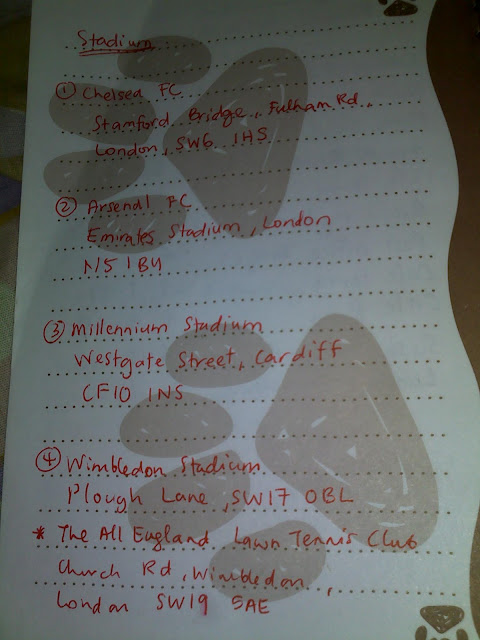 Stadium
① Chelsea FC
Stamford Bridge, Fulham Rd,
London, SW6 1HS
② Arsenal FC
Emirates Stadium, London
N5 1BU
③ Millennium Stadium
Westgate Street, Cardiff
CF10 1NS
④ Wimbledon Stadium
Plough Lane, SW17 0BL
* The All England Lawn Tennis Club
Church Rd, Wimbledon,
London SW19 5AE